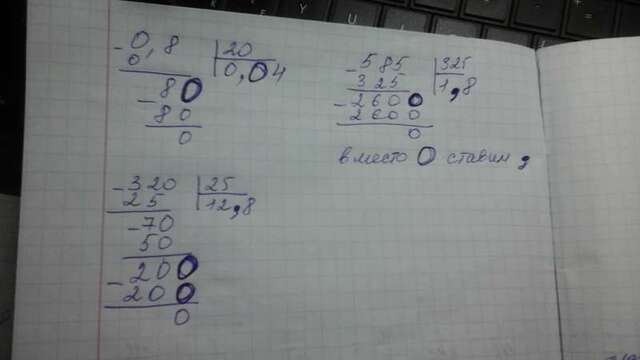 - 0,8 |20
0 0,04
- 80
80
0
- 585 |325
325 1,8
- 2600
2600
0
вместо 0 ставим ,
- 320 |25
25 12,8
- 70
50
- 200
200
0